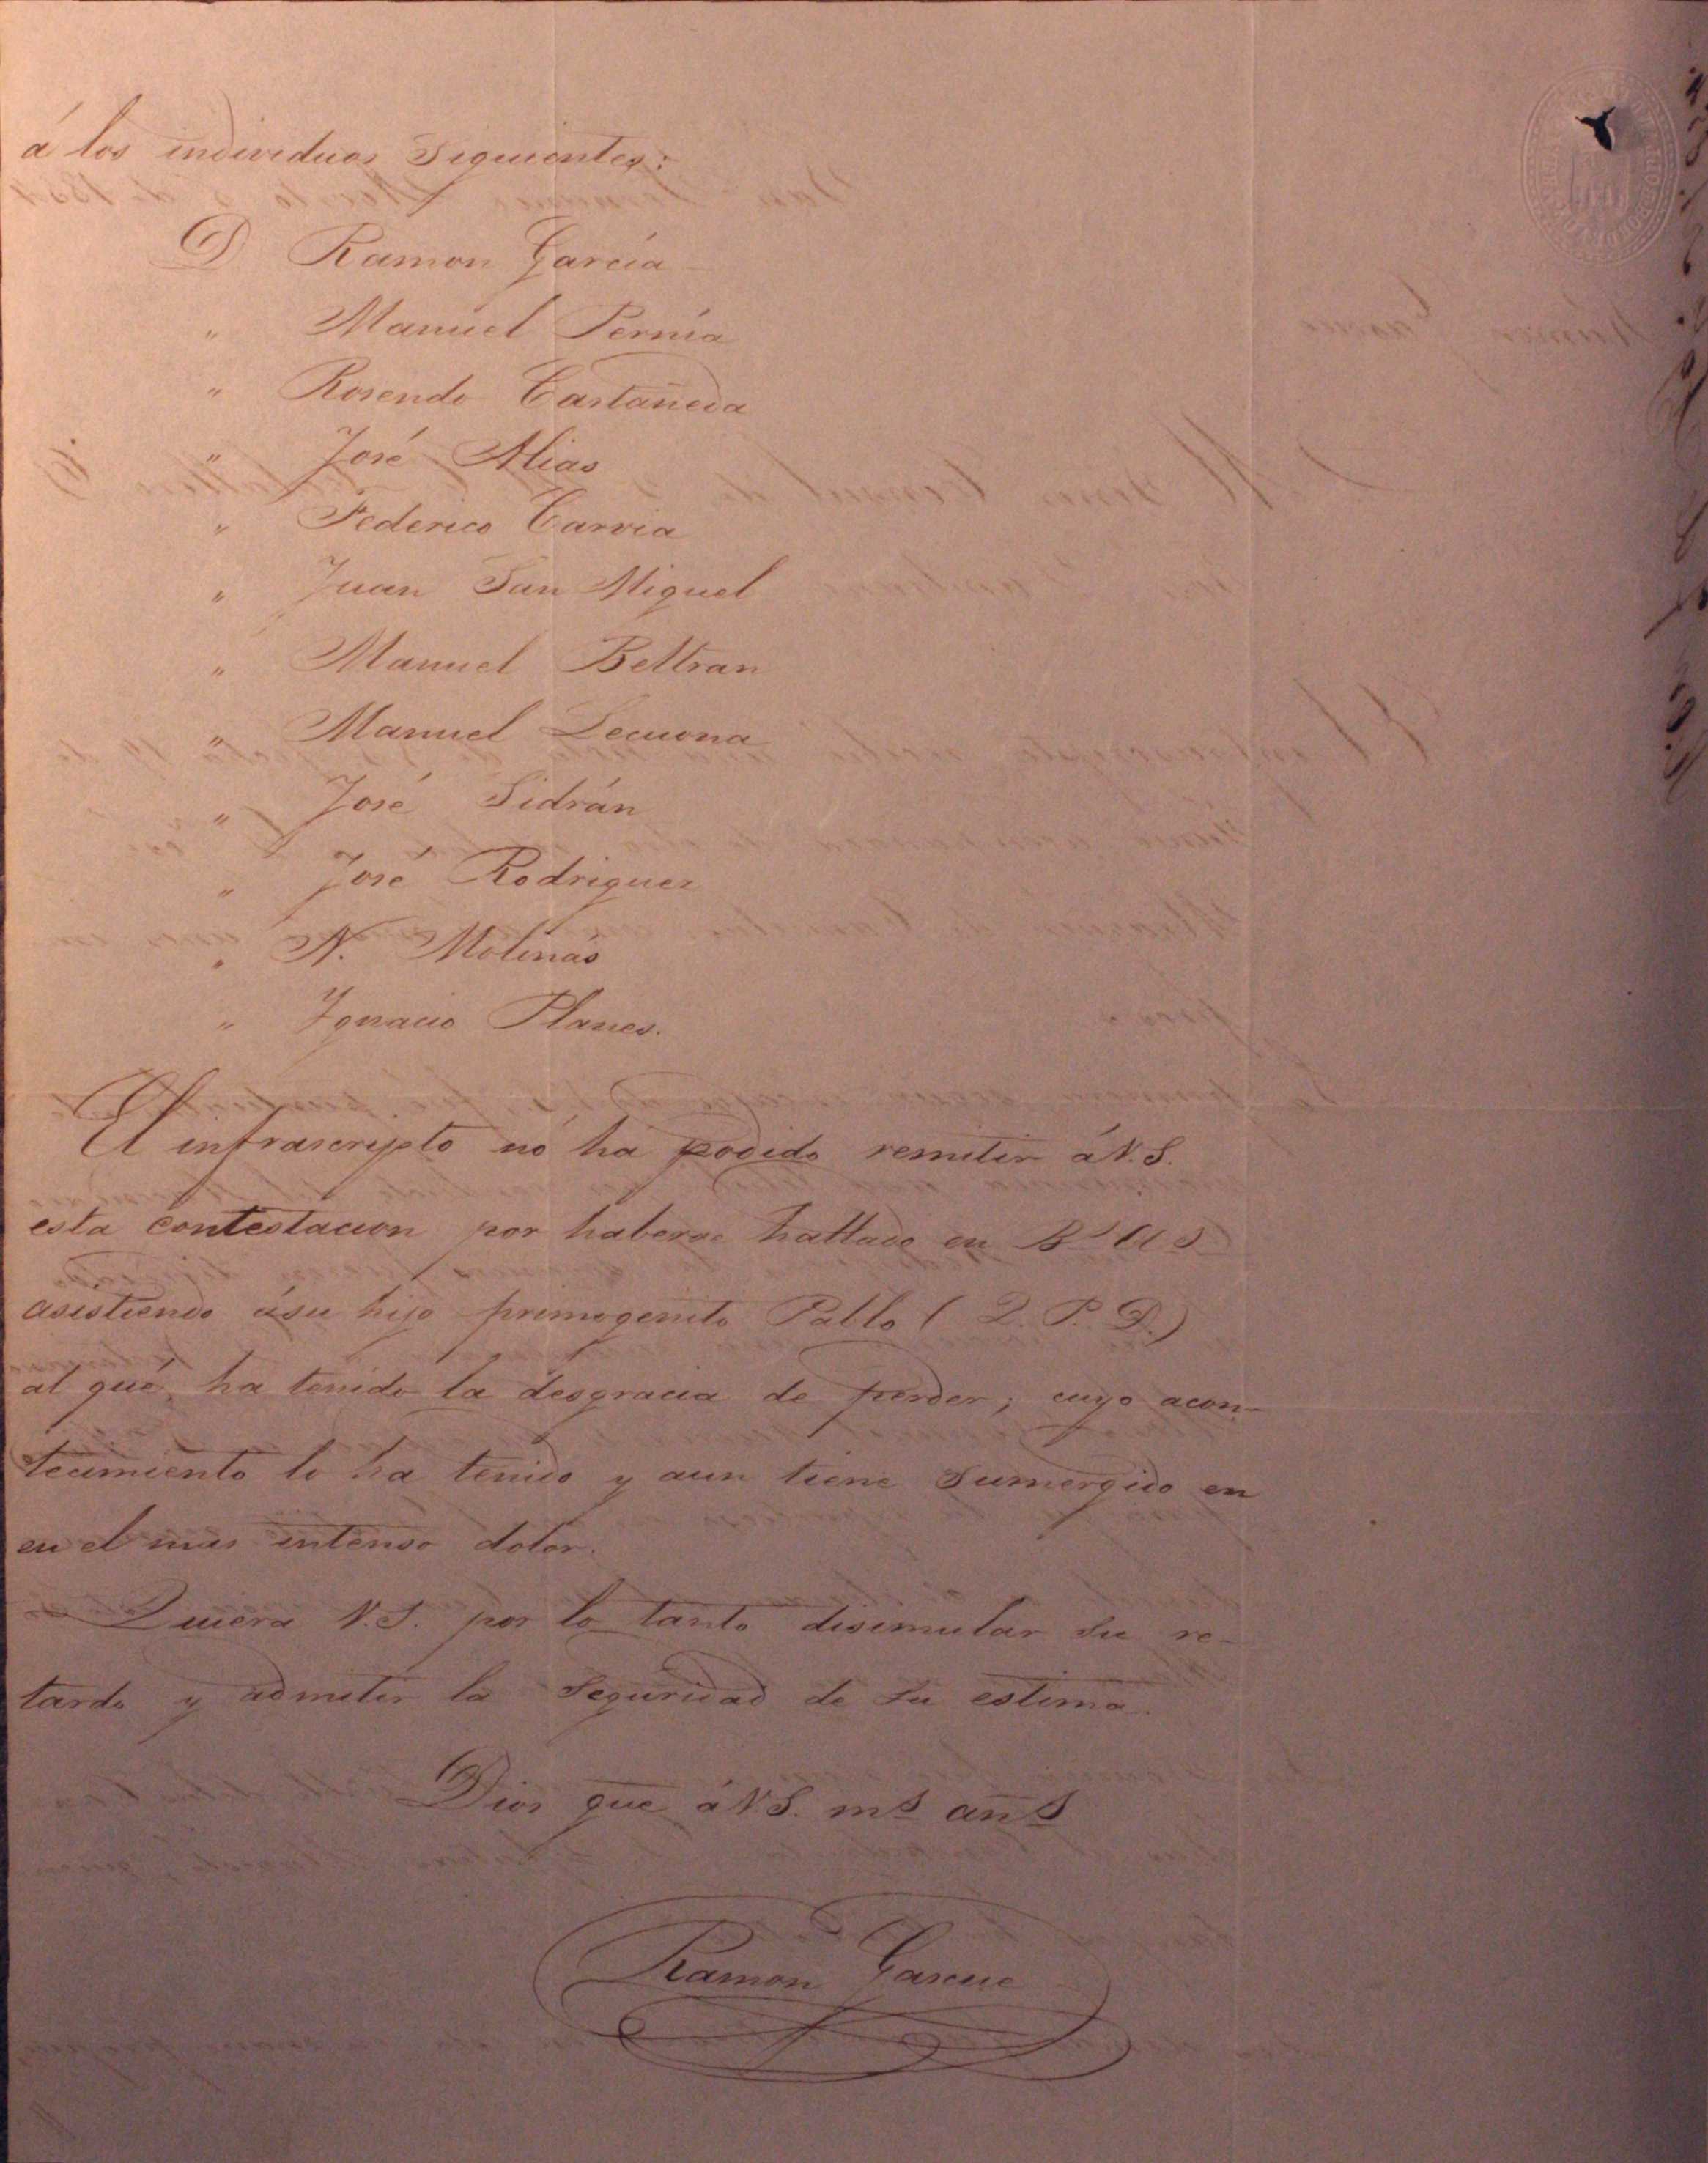 á los individuos siguientes:
D Ramon García
" Manuel Pernía
" Rosendo Castañeda
" José Alias
" Federico Carvia
" Juan San Miguel
" Manuel Beltran
" Manuel Lecuona
" José Sidrán
" José Rodriguez
" N. Molinás
" Ygnacio Planes.
El infrascripto nó ha podido remitir á V.S.
esta contestacion por haberse hallado en Bs As
asistiendo á su hijo primogenito Pablo (Q. P. D.)
al qué, ha tenido la desgracia de perder; cuyo acon-
tecimiento lo ha tenido y aun tiene sumergido en
en el mas intenso dolor.
Quiera V.S. por lo tanto disimular su re-
tardo y admitir la seguridad de su estima.
Dios gue á V.S. ms añs
Ramon Gascue